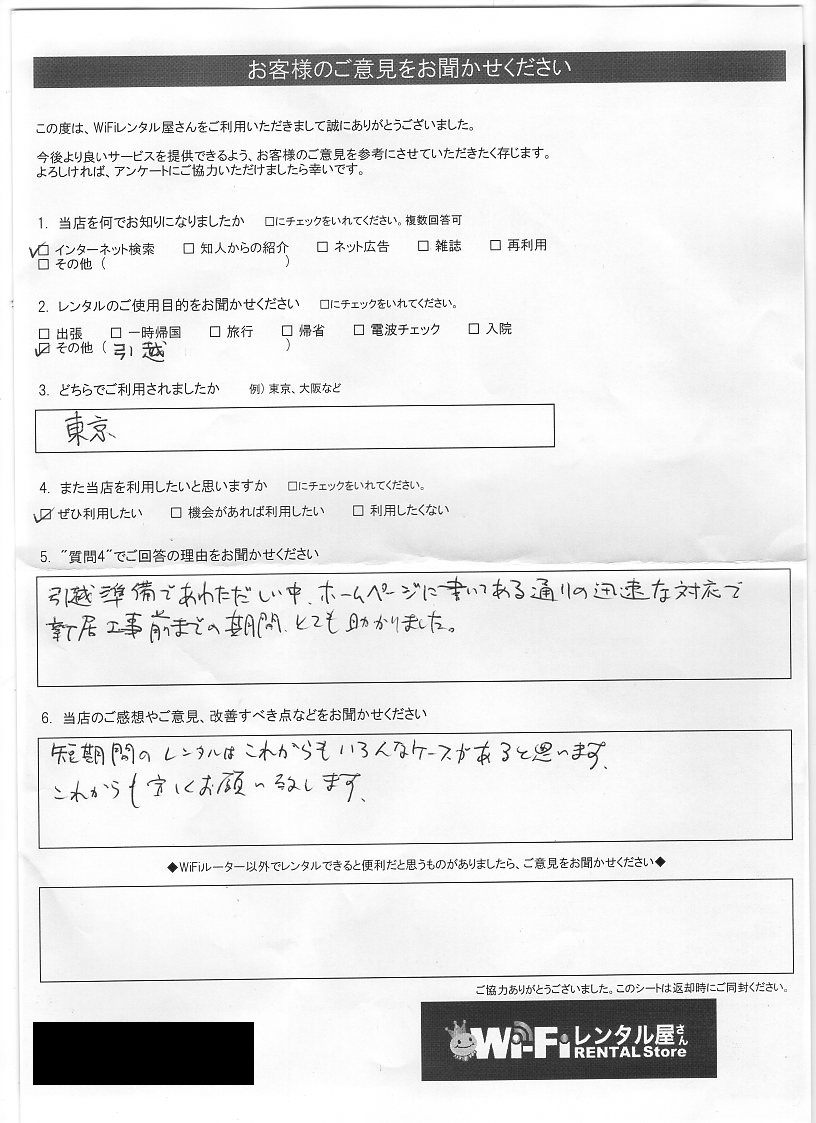 お客様のご意見をお聞かせください
この度は、WiFiレンタル屋さんをご利用いただきまして誠にありがとうございました。
今後より良いサービスを提供できるよう、お客様のご意見を参考にさせていただきたく存じます。
よろしければ、アンケートにご協力いただけましたら幸いです。
1. 当店を何でお知りになりましたか　□にチェックをいれてください。複数回答可
☑ インターネット検索　□ 知人からの紹介　□ ネット広告　□ 雑誌　□ 再利用
□ その他（　　　　　　　）
2. レンタルのご使用目的をお聞かせください　□にチェックをいれてください。
□ 出張　□ 一時帰国　□ 旅行　□ 帰省　□ 電波チェック　□ 入院
☑ その他（引越　　　　　）
3. どちらでご利用されましたか　例）東京、大阪など
東京
4. また当店を利用したいと思いますか　□にチェックをいれてください。
☑ ぜひ利用したい　□ 機会があれば利用したい　□ 利用したくない
5. "質問4"でご回答の理由をお聞かせください
引越準備であわただしい中、ホームページに書いてある通りの迅速な対応で
新居工事前までの期間、とても助かりました。
6. 当店のご感想やご意見、改善すべき点などをお聞かせください
短期間のレンタルはこれからもいろんなケースがあると思います、
これからも宜しくお願い致します、
◆WiFiルーター以外でレンタルできると便利だと思うものがありましたら、ご意見をお聞かせください◆
ご協力ありがとうございました。このシートは返却時にご同封ください。
Wi-Fiレンタル屋さん
RENTAL Store